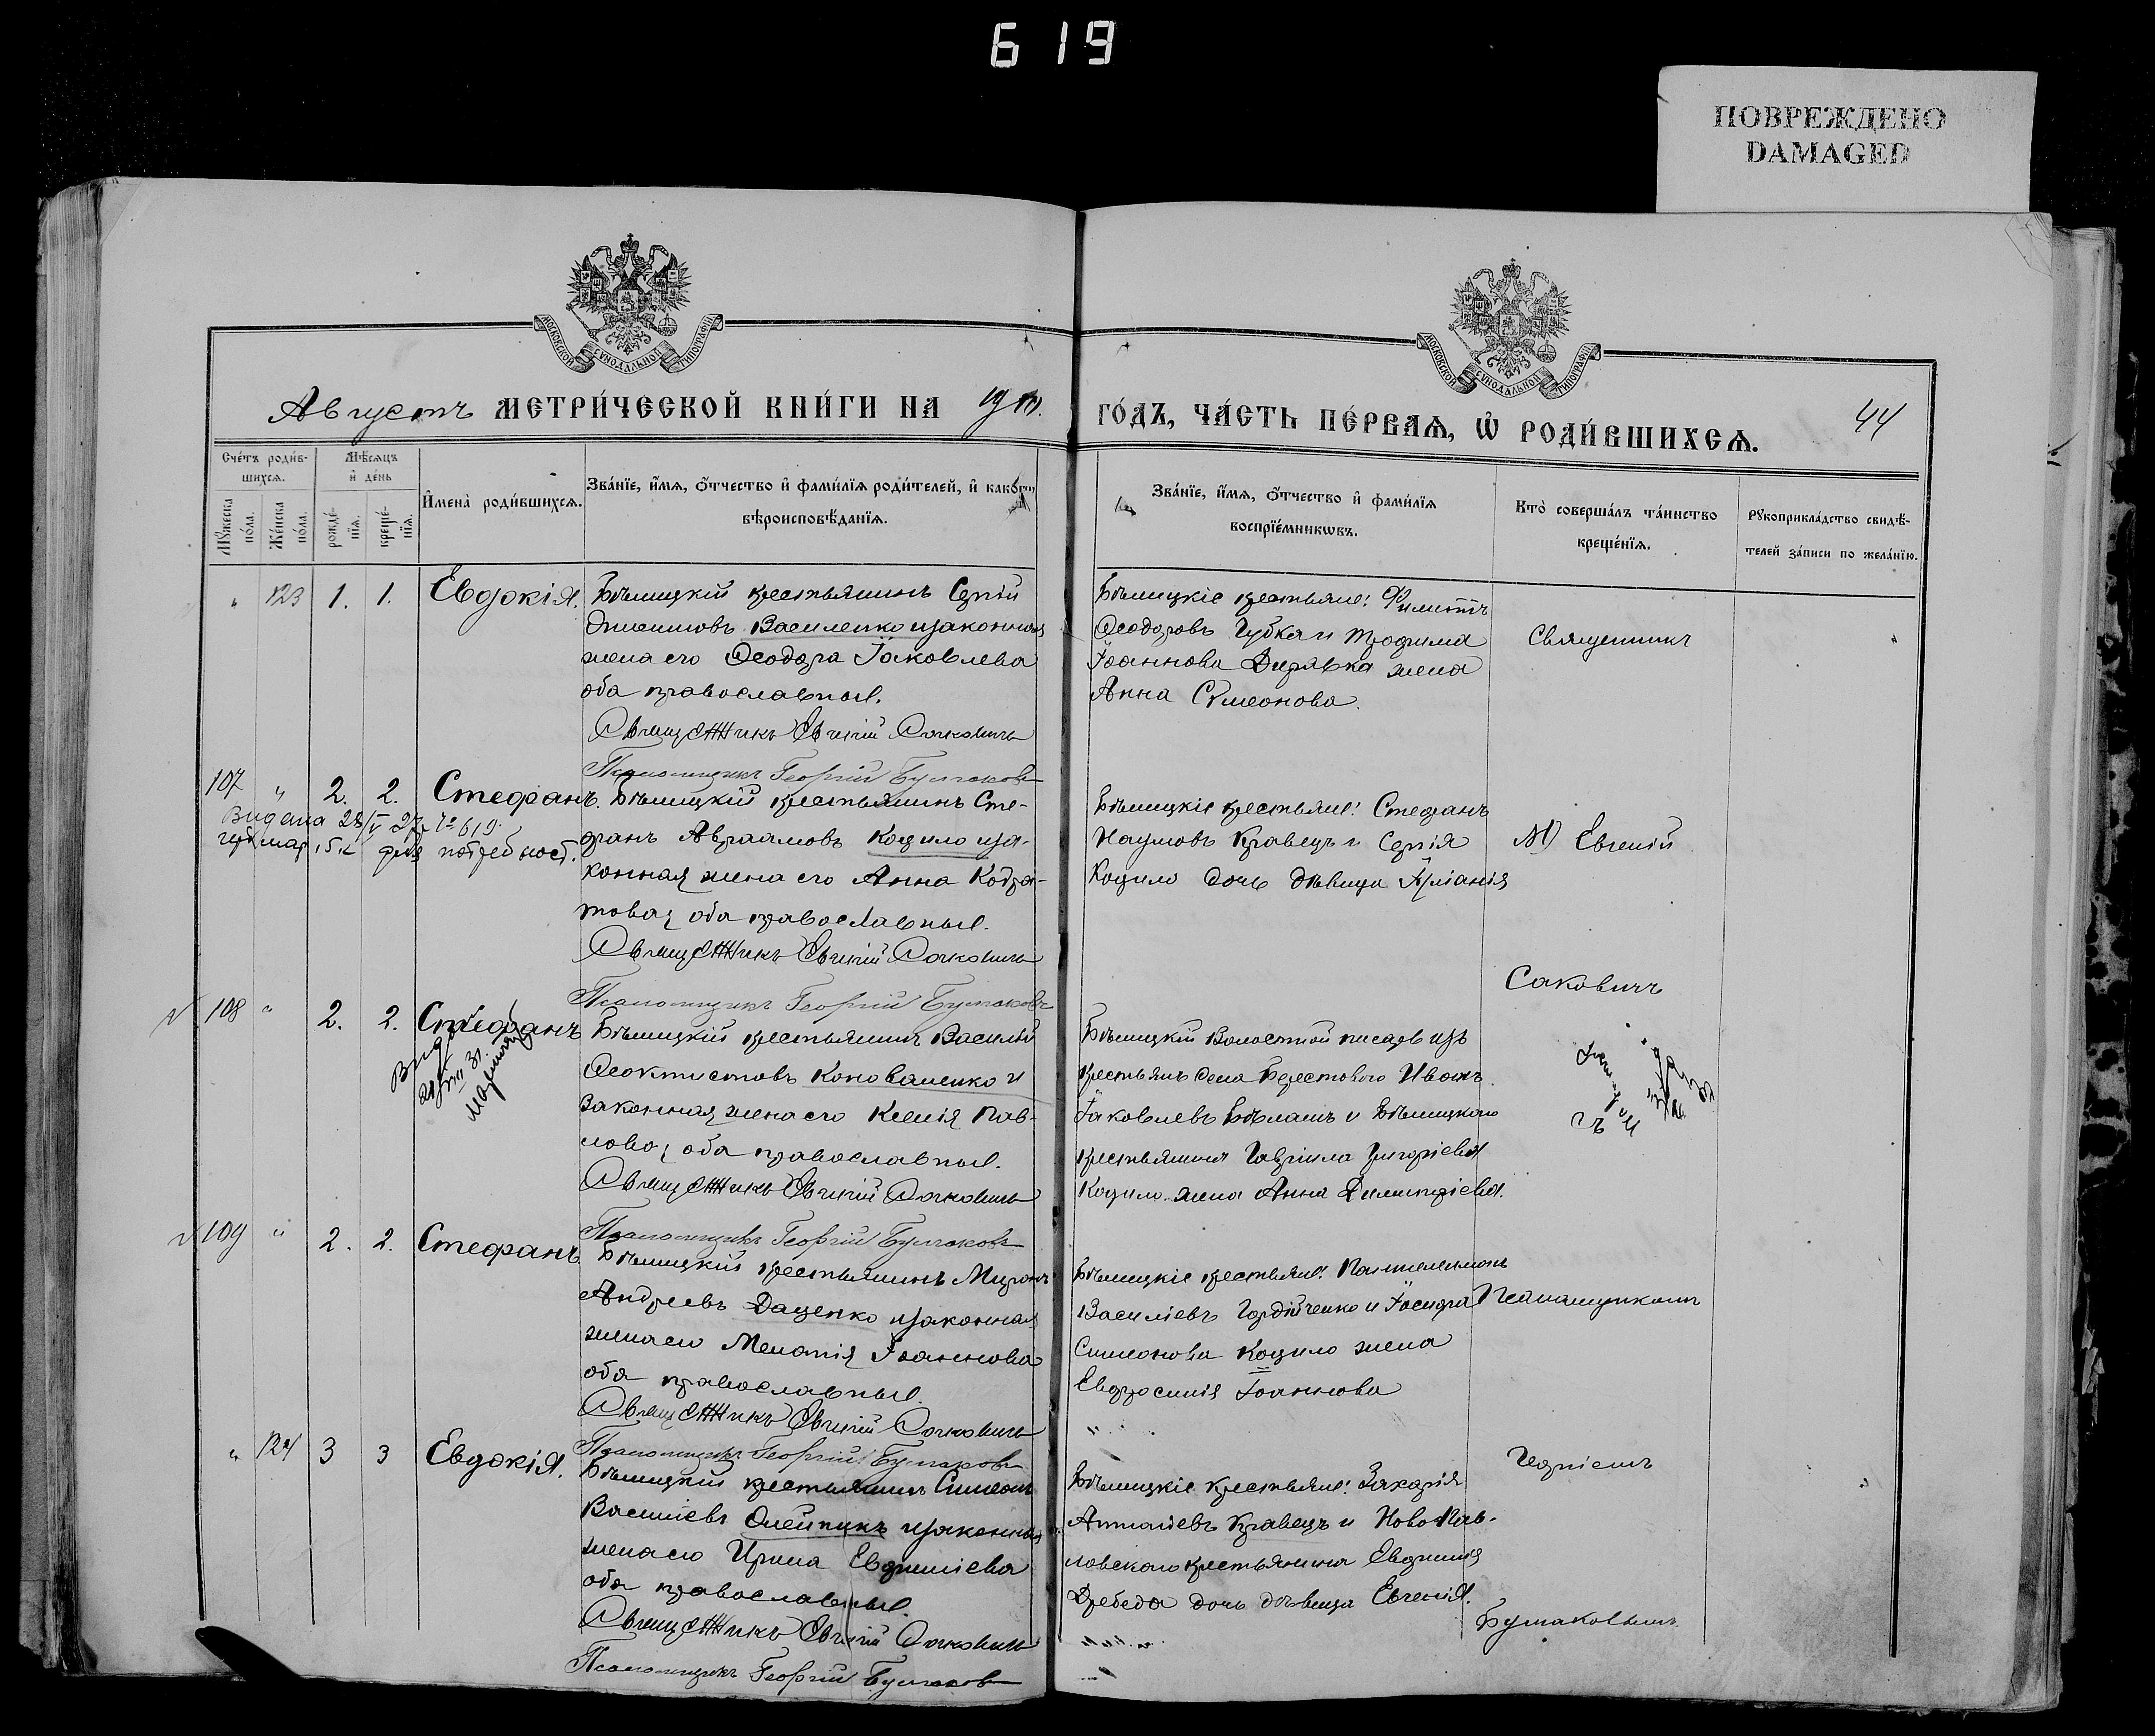 619
ПОВРЕЖДЕНО
DAMAGED
МОСКОВСКОЙ СУНОДАЛЬНОЙ ТИПОГРАФІИ
МОСКОВСКОЙ СУНОДАЛЬНОЙ ТИПОГРАФІИ
Августъ МЕТРИ́ЧЕСКОЙ КНИ́ГИ НА
ГО́ДЪ, ЧА́СТЬ ПЕ́РВАѦ, Ѡ҆ РОДИ́ВШИХСѦ.
44
Сче́тъ роди́в-
шихсѧ.
Мѣ́сѧцъ
и҆ де́нь
Мꙋ́жеска по́ла.
Же́нска по́ла.
рожде́-
нїѧ.
креще́-
нїѧ.
И҆мена̀ роди́вшихсѧ.
Зва́нїе, и҆́мѧ, ѻ҆́тчество и҆ фами́лїѧ роди́телей, и҆ како́гѡ
вѣроисповѣ́данїѧ.
Зва́нїе, и҆́мѧ, ѻ҆́тчество и҆ фами́лїѧ
воспрїе́мникѡвъ.
Кто̀ соверша́лъ та́инство
креще́нїѧ.
Рꙋкоприкла́дство свидѣ́-
телей за́писи по жела́нїю.
" 123 1. 1. Евдокія. Бѣлицкій крестьянинъ Сергій
Василенко и законная
жена его Ѳеодора Іаковлева
оба православные.
Священникъ Евгеній Саковичъ
Псаломщикъ Георгій Булгаковъ
Бѣлицкіе крестьяне: Филиппъ
Ѳеодоровъ Губка и Трофима
Іоаннова Дирявка жена
Анна Сѵмеонова.
Священникъ
107 " 2. 2. Стефанъ. Бѣлицкій крестьянинъ Сте-
фанъ Авраамовъ Коцило и за-
конная жена его Анна Кодра-
това, оба православные.
Священникъ Евгеній Саковичъ
Псаломщикъ Георгій Булгаковъ
Видана 28/V 27 № 619.
Бѣлицкіе крестьяне: Стефанъ
Наумовъ Кравецъ и Сергія
Коцило дочь дѣвица Іуліанія
Евгеній
Саковичъ
108 " 2. 2. Стефанъ Бѣлицкій крестьянинъ Василій
Ѳеоктистовъ Коноваленко и
законная жена его Ксенія Пав-
лова, оба православные.
Священникъ Евгеній Саковичъ
Псаломщикъ Георгій Булгаковъ
Бѣлицкій Волостной писарь изъ
крестьянъ села Берестового Иванъ
Іаковлевъ Бѣлашъ и Бѣлицкаго
крестьянина Гавріила Григоріева
Коцило жена Анна Димитріева.
109 " 2. 2. Стефанъ Бѣлицкій крестьянинъ Миронъ
Андреевъ Даценко и законная
жена его Меланія Іоаннова
оба православные.
Священникъ Евгеній Саковичъ
Псаломщикъ Георгій Булгаковъ
Бѣлицкіе крестьяне: Пантелеимонъ
Василіевъ Гордѣйченко и Іосифа
Симеонова Коцило жена
Евфросинія Іоаннова
Псаломщикомъ
" 124 3 3 Евдокія. Бѣлицкій крестьянинъ Симеонъ
Василіевъ Олейникъ и законная
жена его Ирина Евфиміева
оба православные.
Священникъ Евгеній Саковичъ
Псаломщикъ Георгій Булгаковъ
Бѣлицкіе крестьяне: Захарія
Кравецъ и Ново-Пав-
ловского крестьянина Евфимія
Дребеда дочь дѣвица Евгенія.
Георгіемъ
Булгаковымъ